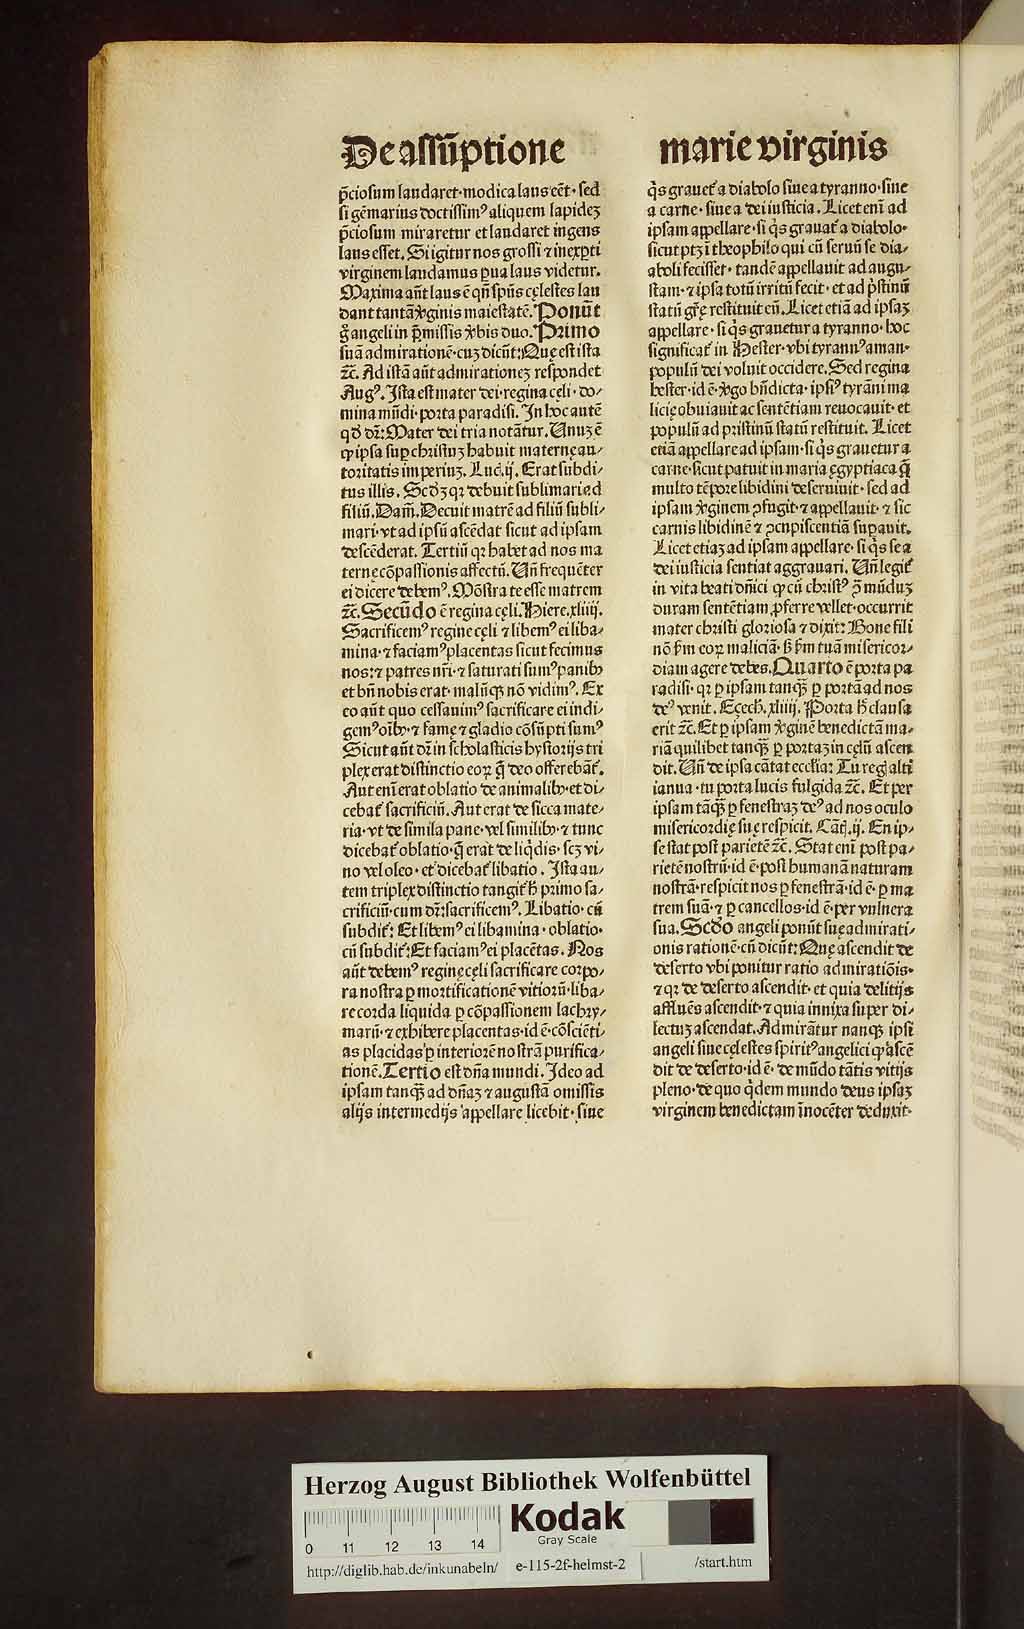 De assu̅ptione
p̅ciosum laudaret· modica laus ee̅t· sed
si ge̅marius doctissimꝰ aliquem lapidez
p̅ciosum miraretur et laudaret ingens
laus esset. Si igitur nos grossi ⁊ inexꝑti
virginem laudamus ꝑua laus videtur.
Maxima au̅t laus e̅ qn̅ spu̅s cęlestes lau
dant tanta̅ ꝟginis maiestate̅. Ponu̅t
g̊ angeli in p̅missis ꝟbis duo. Primo
sua̅ admiratione̅· cuz dicu̅t: Quę est ista
⁊c̅. Ad ista̅ au̅t admirationez respondet
Augꝰ. Ista est mater dei· regina cęli· do⸗
mina mu̅di· porta paradisi. In hoc aute̅
qd̅ dr̅: Mater dei tria nota̅tur. Unuz e̅
ꝙ ipsa suꝑ christuz habuit maternę au⸗
toritatis imperiuz. Luc̅. ij. Erat subdi⸗
tus illis. Scd̅z qꝛ debuit sublimari ad
filiu̅. Dam̅. Decuit matre̅ ad filiu̅ subli⸗
mari· vt ad ipsu̅ asce̅dat sicut ad ipsam
desce̅derat. Tertiu̅ qꝛ habet ad nos ma
ternę co̅passionis affectu̅. Un̅ freque̅ter
ei dicere debemꝰ. Mo̅stra te esse matrem
⁊c̅. Secu̅do e̅ regina cęli. Hiere. xliiij.
Sacrificemꝰ regine cęli ⁊ libemꝰ ei liba⸗
mina· ⁊ faciamꝰ placentas sicut fecimus
nos: ⁊ patres nr̅i· ⁊ saturati sumꝰ panibꝰ
et bn̅ nobis erat· malu̅qꝫ no̅ vidimꝰ. Ex
eo au̅t quo cessauimꝰ sacrificare ei indi⸗
gemꝰ oi̅bꝰ· ⁊ famę ⁊ gladio co̅su̅pti sumꝰ
Sicut au̅t dr̅ in scholasticis hystorijs tri
plex erat distinctio eoꝝ q̅ deo offereba̅t̉.
Aut eni̅ erat oblatio de animalibꝰ· et di⸗
cebat̉ sacrificiu̅. Aut erat de sicca mate⸗
ria· vt de simila pane· vel similibꝰ· ⁊ tunc
dicebat̉ oblatio· q̅ erat de liq̇dis· scz vi⸗
no vel oleo· et dicebat̉ libatio. Ista au⸗
tem triplex distinctio tangit̉ h̅ primo sa⸗
crificiu̅· cum dr̅: sacrificemꝰ. Libatio· cu̅
subdit̉: Et libemꝰ ei libamina· oblatio·
cu̅ subdit̉: Et faciamꝰ ei place̅tas. Nos
au̅t debemꝰ reginę cęli sacrificare corpo⸗
ra nostra ꝑ mortificatione̅ vitioru̅· liba⸗
re corda liquida ꝑ co̅passionem lachry⸗
maru̅· ⁊ exhibere placentas· id e̅ co̅scie̅ti⸗
as placidas ꝑ interiore̅ nostra̅ purifica⸗
tione̅. Tertio est dn̅a mundi. Ideo ad
ipsam tanqꝫ̅ ad dn̅az ⁊ augusta̅ omissis
alijs intermedijs appellare licebit· siue
marie virginis
q̇s grauet̉ a diabolo siue a tyranno· siue
a carne· siue a dei iusticia. Licet eni̅ ad
ipsam appellare· si q̇s grauat̉ a diabolo·
sicut ptz i̅ theophilo qui cu̅ seruu̅ se dia⸗
aboli fecisset· tande̅ appellauit ad augu⸗
stam· ⁊ ipsa totu̅ irritu̅ fecit· et ad ṗstinu̅
statu̅ gr̅ę restituit eu̅. Licet etia̅ ad ipsaz
appellare· si q̇s grauetur a tyranno· hoc
significat̉ in Hester· vbi tyrannꝰ aman·
populu̅ dei voluit occidere. Sed regina
hester· id e̅ ꝟgo bn̅dicta· ipsiꝰ tyra̅ni ma
licię obuiauit ac sente̅tiam reuocauit· et
populu̅ ad pristinu̅ statu̅ restituit. Licet
etia̅ appellare ad ipsam· si q̇s grauetur a
carne· sicut patuit in maria ęgyptiaca q̅
multo te̅pore libidini deseruiuit· sed ad
ipsam ꝟginem ꝯfugit· ⁊ appellauit· ⁊ sic
carnis libidine̅ ⁊ ꝯcupiscentia̅ suꝑauit.
Licet etiaz ad ipsam appellare· si q̇s se a
dei iusticia sentiat aggrauari. Un̅ legit̉
in vita beati dn̅ici ꝙ cu̅ christꝰ ꝯ̅ mu̅duz
duram sente̅tiam ꝓferre vellet· occurrit
mater christi gloriosa ⁊ dixit: Bone fili
no̅ ẜm eoꝝ malicia̅· ß ẜm tua̅ misericor⸗
diam agere debes. Quarto e̅ porta pa
radisi· qꝛ ꝑ ipsam tanqꝫ̅ ꝑ porta̅ ad nos
deꝰ venit. Eçech̅. xliiij. Porta h̅ clausa
erit ⁊c̅. Et ꝑ ipsam ꝟgine̅ benedicta̅ ma⸗
ria̅ quilibet tanqꝫ̅ ꝑ portaz in cęlu̅ ascen
dit. Un̅ de ipsa ca̅tat eccl̅ia: Tu reg̅ alti
ianua· tu porta lucis fulgida ⁊c̅. Et per
ipsam ta̅qꝫ̅ ꝑ fenestraz deꝰ ad nos oculo
misericordię suę respicit. Ca̅t̉. ij. En ip⸗
se stat post pariete̅ ⁊c̅. Stat eni̅ post pa⸗
riete̅ nostru̅· id e̅ post humana̅ naturam
nostra̅· respicit nos ꝑ fenestra̅· id e̅· ꝑ ma
trem sua̅· ⁊ ꝑ cancellos· id e̅· per vulnera
sua. Scd̅o angeli ponu̅t suę admirati⸗
onis ratione̅· cu̅ dicu̅t: Quę ascendit de
deserto vbi ponitur ratio admiratio̅is·
⁊ qꝛ de deserto ascendit· et quia delitijs
afflue̅s ascendit· ⁊ quia innixa super di⸗
lectuz ascendat. Admira̅tur nanqꝫ ipsi
angeli siue cęlestes spiritꝰ angelici ꝙ asce̅
dit de deserto· id e̅· de mu̅do ta̅tis vitijs
pleno· de quo q̇dem mundo deus ipsaz
virginem benedictam i̅noce̅ter deduxit·
Herzog August Bibliothek Wolfenbüttel
0 11 12 13 14
Kodak
Gray Scale
http://diglib.hab.de/inkunabeln/ e-115-2f-helmst-2 /start.htm